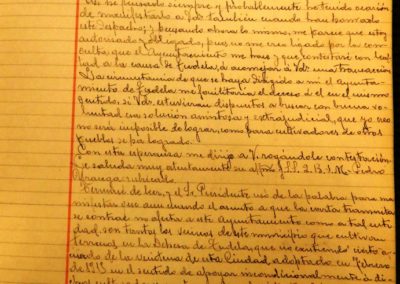 he pensado siempre y probablemente he tenido ocasión
de manifestarlo a Vds también cuando han honrado
este Despacho; y pensando ahora lo mismo, me parece que estoy
autorizado y obligado, pues no me creo ligado por la con-
sulta que el Ayuntamiento me hizo y que contesté con leal-
tad a la causa de Tudela, á aconsejar á Vds. una transacción
La circunstancia de que se haya dirigido a mi el Ayunta-
miento de Tudela me facilitaría el deseo de él en el mismo
sentido, si Vds. estuvieran dispuestos a buscar con buena vo-
luntad una solución amistosa y extrajudicial, que yo creo
no será imposible de lograr, como para cultivadores de otros
Pueblos se ha logrado.
Con esta esperanza me dirijo a V. rogándole contestación
Le saluda muy atentamente su affmo. S.S. q. B. S. M. Pedro
Uranga rubricado.
Terminó de leer, y el Sr. Presidente usó de la palabra para ma-
nifestar que aun cuando el asunto a que la carta transcrita
se contrae no afecta a este Ayuntamiento como a tal enti-
dad, son tantos los vecinos de este municipio que cultivan
terrenos en la Dehesa de Tudela, que no contando este a-
cuerdo de la vecindad de esta Ciudad, adoptado en Febrero
de 1913 en el sentido de apoyar incondicionalmente a di-